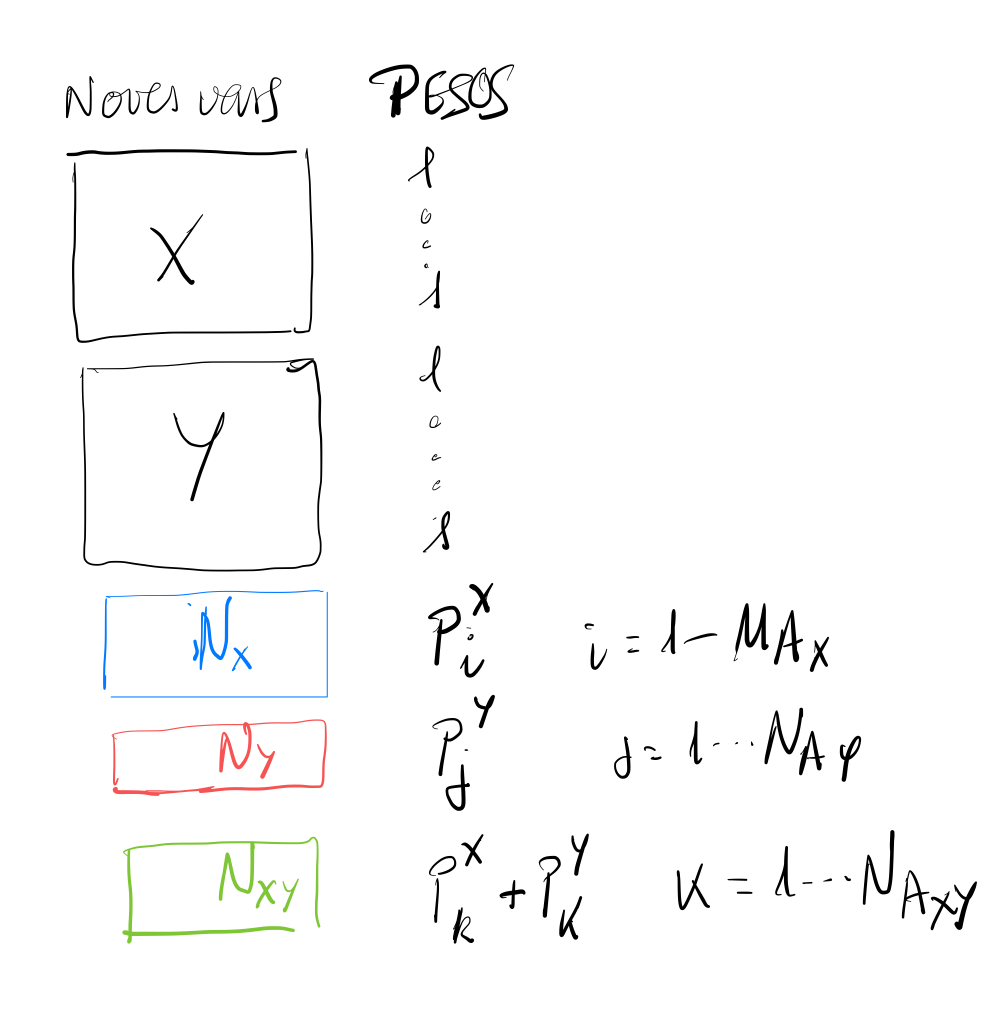 Noves vars PESOS
X 1
1
Y 1
1
N_X P_i^X i = 1 – NA_X
N_Y P_j^Y j = 1 ... N_{AY}
N_{XY} P_k^X + P_k^Y K = 1 ... N_{A_{XY}}